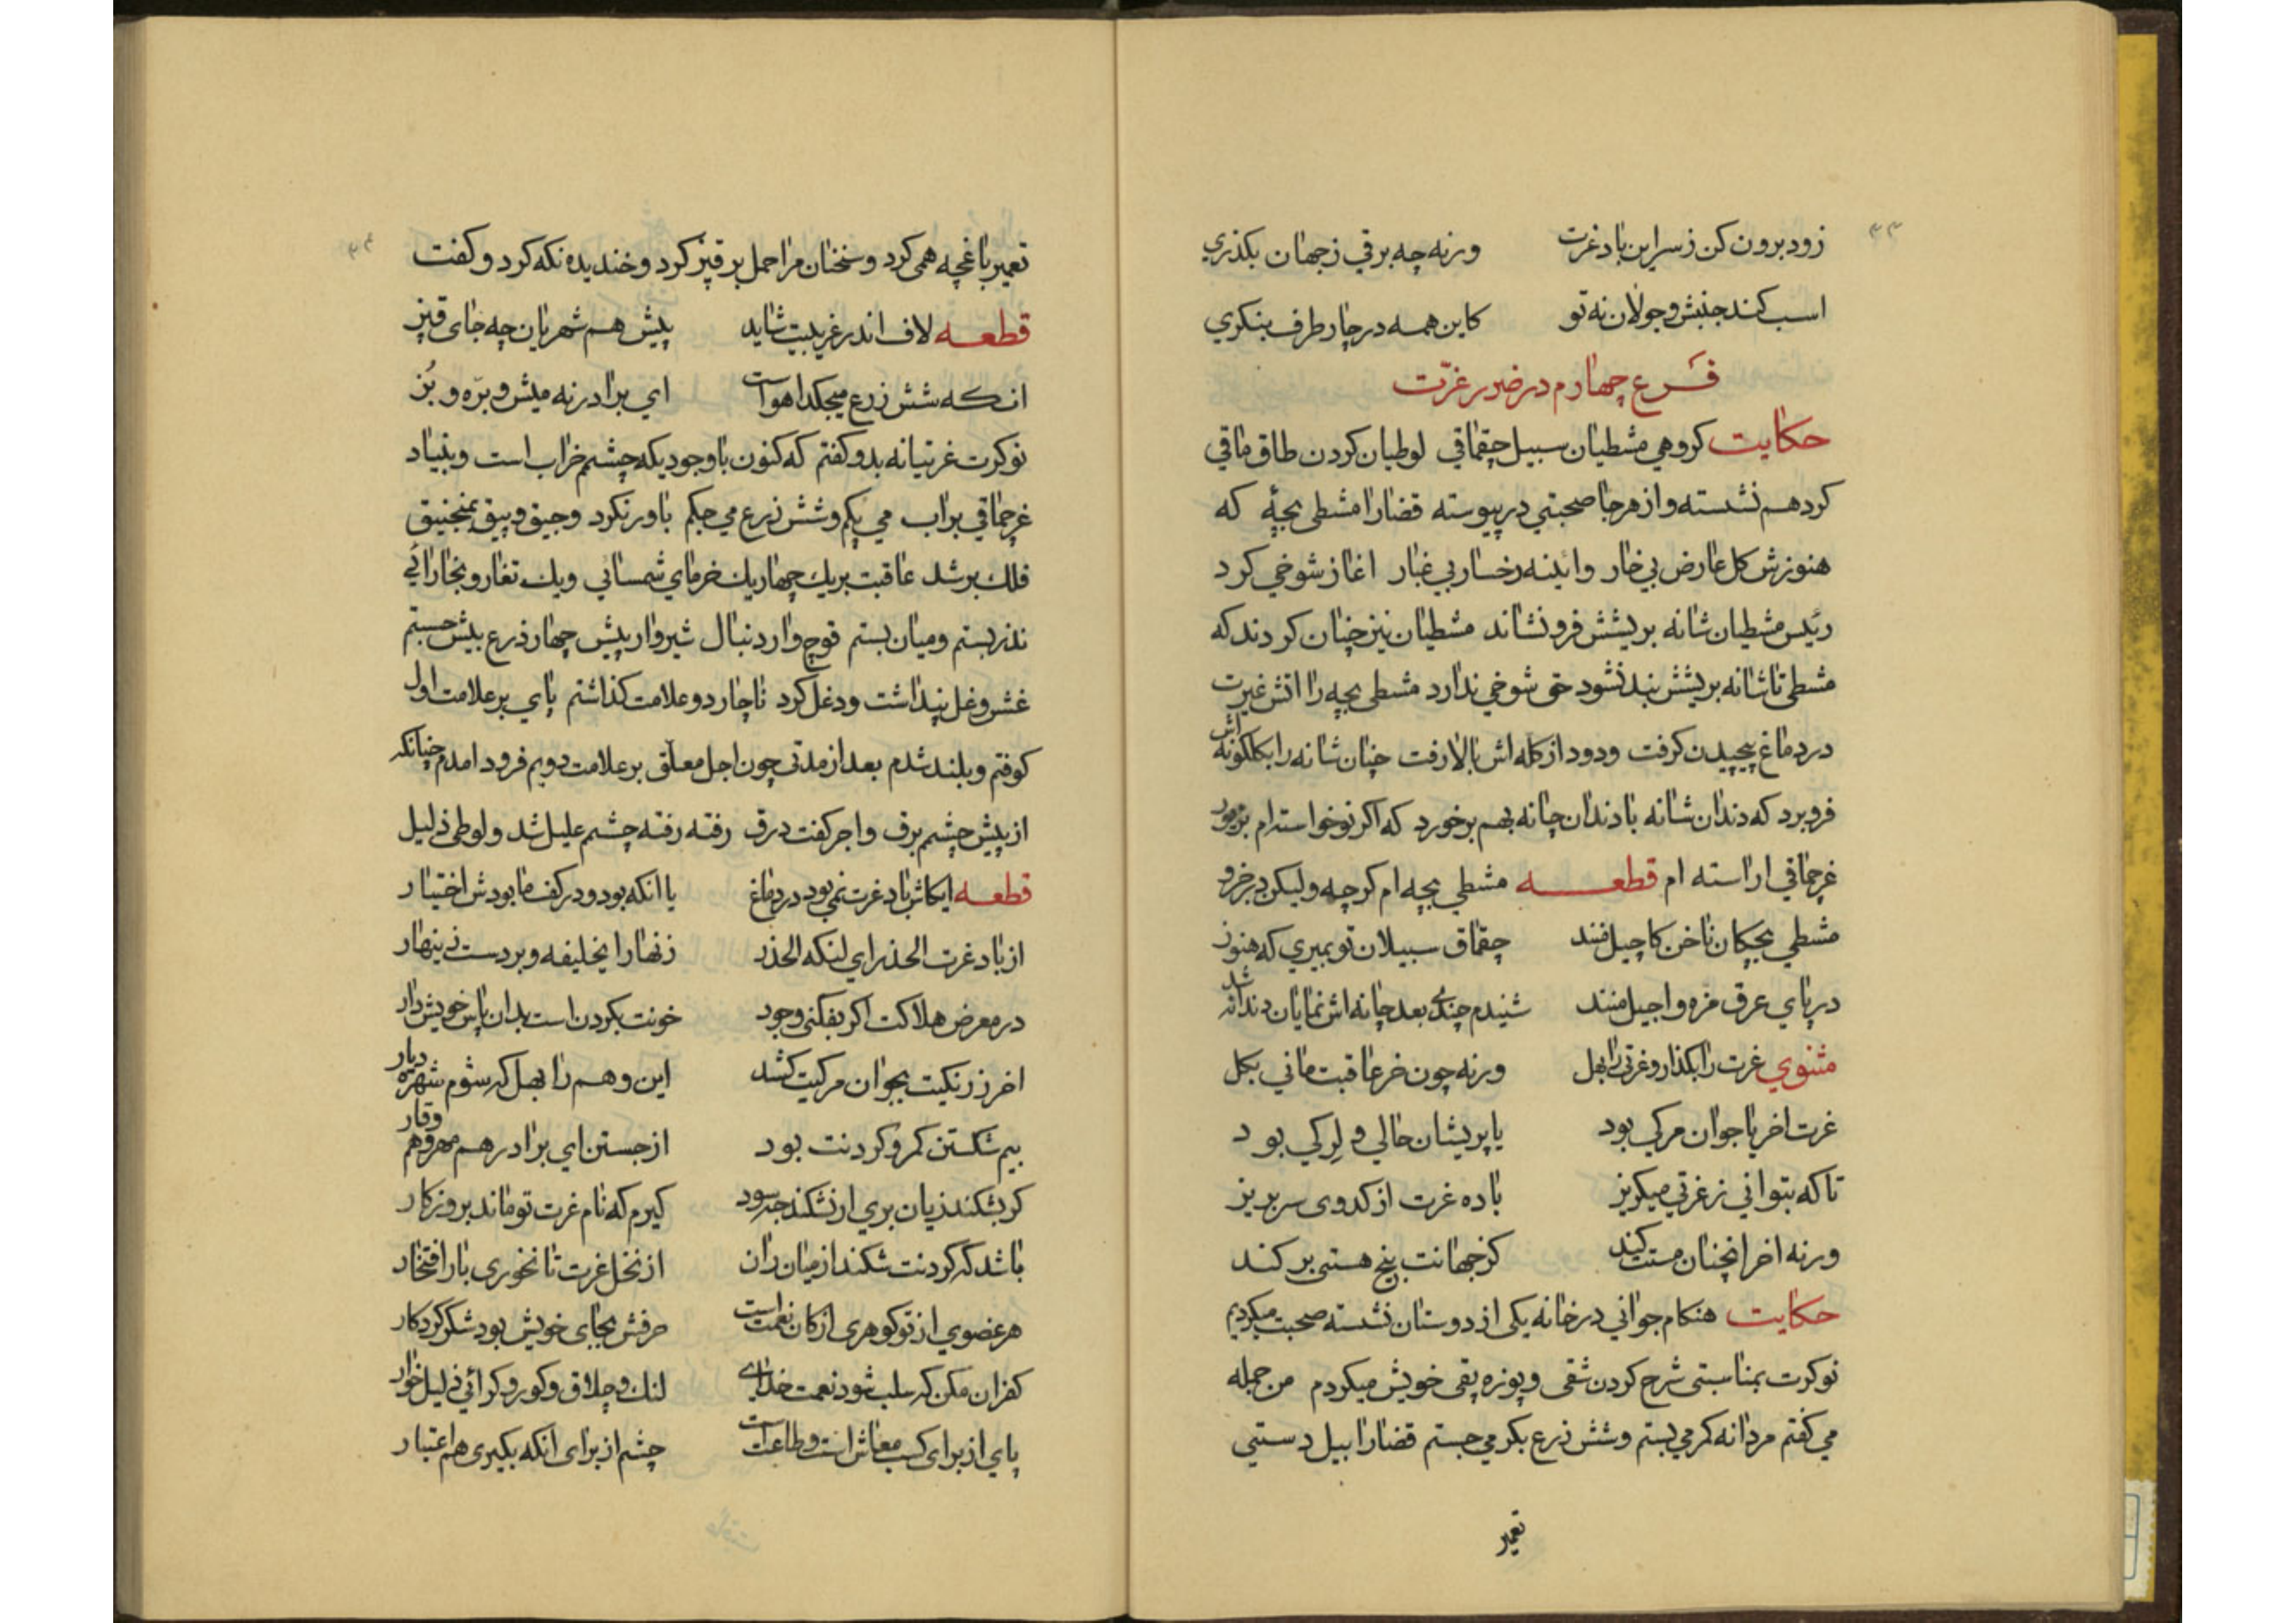 ۳۳
زود برون کن ز سر این باد غرت ورنه چه برقی ز جهان بکذری
اسب کند جنبش و جولان نه تو کاین همه در چار طرف بنکری
فرع چهارم در ضرر غرّت
حکایت کروهی مشطیان سبیل چقماقی لوطیان کردن طاق ماقی
کرد هم نشسته و از هر جا صحبتی در پیوسته قضارا مشطی بچهٔ که
هنوزش کل عارض بی خار و ائینه رخسار بی غبار اغاز شوخی کرد
رئیس مشطیان شانه بریشش فرو نشاند مشطیان نیز چنان کردند که
مشطی تا شانه بریشش بند نشود حق شوخی ندارد مشطی بچه را اتش غیرت
در دماغ پیچیدن کرفت و دود از کله اش بالا رفت چنان شانه را بکلکونه اش
فرو برد که دندان شانه با دندان چانه بهم برخورد که اکر نوخواسته ام
غرچماقی اراسته ام قطعه مشطی بچه ام کرچه ولیکن
مشطی بچکان ناخن کاچیل منند چقماق سبیلان تو بمیری که هنوز
در پای عرق مزه و اجیل منند شنیدم چندی بعد چانه اش نمایان دندانه شد
مثنوی غرت را بکذار و غرتی را بهل ورنه چون خر عاقبت مانی بکل
غرت اخر یا جوان مرکی بود یا پریشان حالی و لرکی بود
تا که بتوانی ز غرتی میکریز باده غرت از کدوی سر بریز
ورنه اخر انچنان مستت کند کز جهانت بیخ هستی بر کند
حکایت هنکام جوانی در خانه یکی از دوستان نشسته صحبت میکردیم
نوکرت بمناسبتی شرح کردن شقی و پوزه پقی خویش میکردم من جمله
می کفتم مردانه کمر می بستم و شش ذرع بکر می جستم قضارا بیل دستی
تعمیر
۳۴
تعمیر باغچه همی کرد و سخنان مرا حمل بر قپز کرد و خندیده نکه کرد و کفت
قطعه لاف اندر غریبیت شاید پیش هم شهریان چه جای قپز
انکه شش زرع میجکد اهوا ست ای برادر نه میش و بره و بُز
نوکرت غرتیانه بدو کفتم که کنون با وجودیکه چشمم خراب است و بنیاد
غرچماقی بر اب می پکم و شش ذرع می جکم باور نکرد و جیق و پیق بمنجنیق
فلک بر شد عاقبت بر یک چهار یک خرمای شمسائی و یک تغار و بخارائی
نذر بستم و میان بستم قوچ وار دنبال شیروار پیش چهار ذرع بیش جستم
غش و غل نپنداشت و دغل کرد ناچار دو علامت کذاشتم پای بر علامت اول
کوفتم و بلند شدم بعد از مدتی چون اجل معلق بر علامت دویم فرود امدم چنانکه
از پیش چشمم برف و اجر کفت درق رفته رفته چشمم علیل شد و لوطی ذلیل
قطعه ایکاش باد غرت نمی بود در دماغ یا انکه بود و در کف ما بودش اختیار
از باد غرت الحذر ای لنکه الحذر زنهار ایخلیفه و بردست زینهار
در معرض هلاکت اکر بفکنی وجود خونت بکردن است بدان پاس خویش دار
اخر زرنکیت بجوان مرکیت کشد این وهم را بهل که شوم شهره دیار
بیم شکستن کمر و کردنت بود از جستن ای برادر هم مهر و هم وقار
کر بشکند زیان بری ار نشکند چه سود کیرم که نام غرت تو ماند بروزکار
باشد که کردنت شکند از میان ران از نخل غرت تا نخوری بار افتخار
هر عضوی از تو کوهری از کان نعمت است حرفش بجای خویش بود شکر کردکار
کفران مکن که سلب شود نعمت خدای لنک و چلاق و کور و کرائی ذلیل خوار
پای از برای کسب معاش است و طاعت است چشم از برای انکه بکیری هم اعتبار